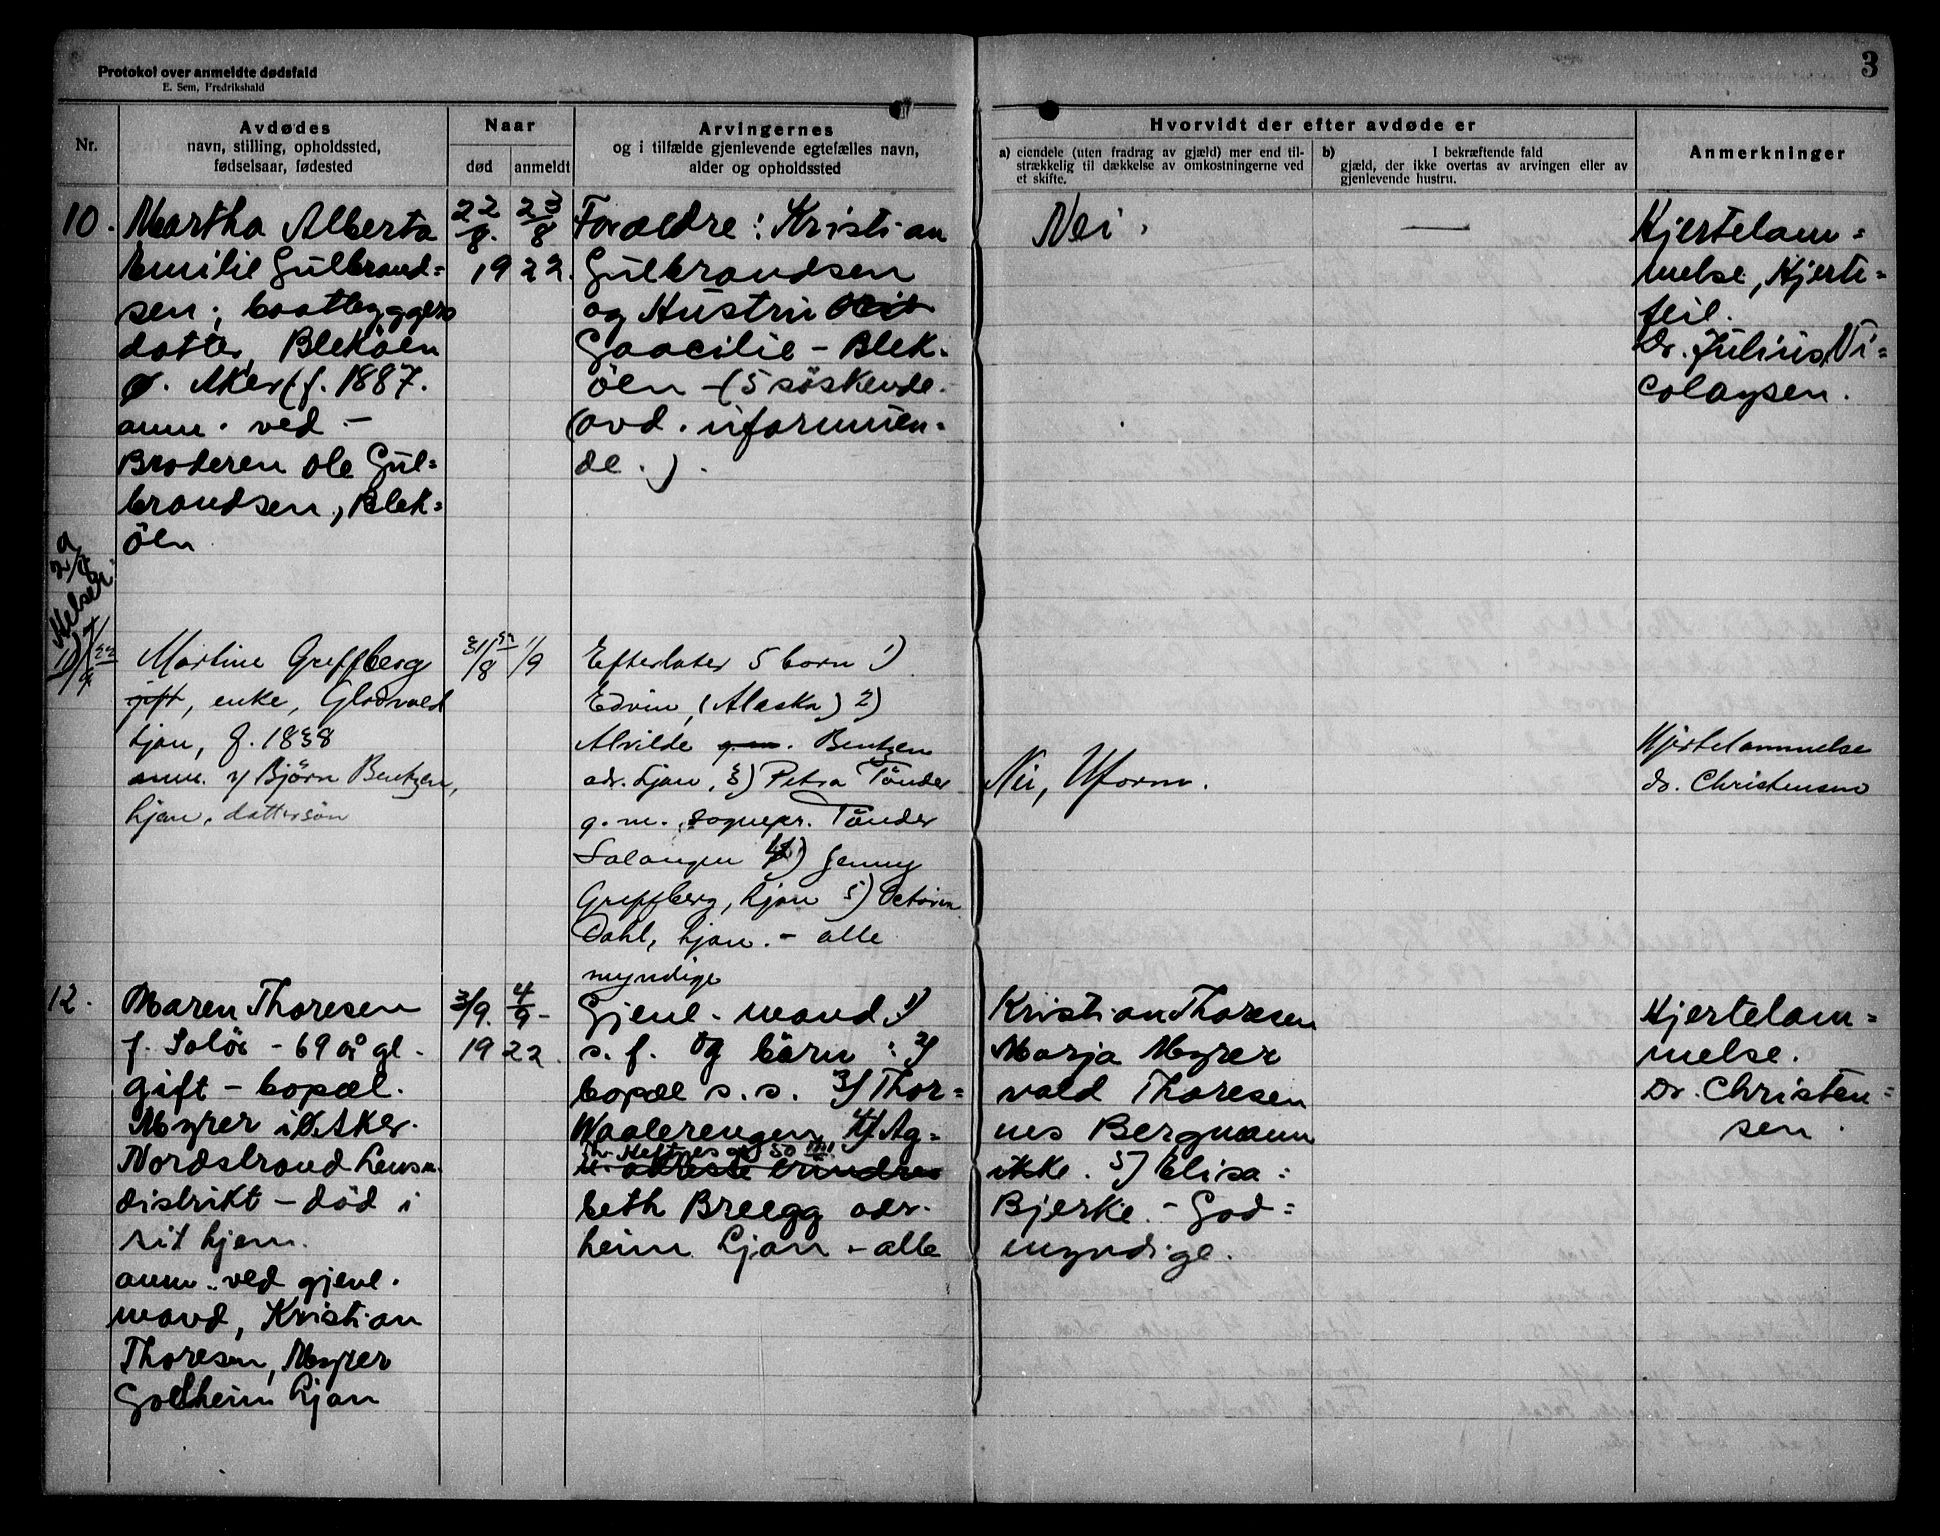 Protokol over anmeldte dødsfald
E. Sem, Fredrikshald
3
Nr.
Avdødes
navn, stilling, opholdssted,
fødselsaar, fødested
Naar
død
anmeldt
Arvingernes
og i tilfælde gjenlevende egtefælles navn,
alder og opholdssted
Hvorvidt der efter avdøde er
a) eiendele (uten fradrag av gjæld) mer end til-
strækkelig til dækkelse av omkostningerne ved
et skifte.
b) I bekræftende fald
gjæld, der ikke overtas av arvingen eller av
gjenlevende hustru.
Anmerkninger
10.
Martha Alberta
Emilie Gulbrand=
sen; baatbyggers
datter, Blekøen
ø. Aker f. 1887.
anm. ved -
Broderen Ole Gul=
brandsen, Blek=
öen
22/8. 23/8
1922.
Forældre: Kristian
Gulbrandsen
og Hustru
- Blek-
öen - (5 söskende.
(avd. uformuen-
de.).
Nei.
—
Hjertelam=
melse, Hjerte=
feil.
Dr. Julius Ni=
colaysen.
Martine Greffberg
gift, enke,
Ljan, f. 1838
anm. v/ Bjørn Bentzen,
Ljan, dattersön
31/8 22 1/9
Efterlater 5 born 1)
Edvin, (Alaska) 2)
Alvilde g.m. Bentzen
adr. Ljan, 3) Petra Tönder
g.m. sognepr. Tönder
Salangen 4) Jenny
Greffberg, Ljan 5)
Dahl, Ljan. - alle
myndige
Nei, Uform.
Hjertelammelse
dr. Christensen
12.
Maren Thoresen
f. Solör - 69 år gl.
gift - bopæl.
Myrer i Ø. Aker.
Nordstrand Lensm.
distrikt - död i
sit hjem.
anm. ved gjenl.
mand, Kristian
Thoresen, Myrer
Ljan
3/9. 4/9-
1922.
Gjenl. mand 1) Kristian Thoresen
s. f. og börn: 2) Marja Myrer
bopæl s. s. 3) Thor= vald Thoresen
Waalerengen 4) Ag= nes Bergmann
adresse erindres ikke. 5) Elisa=
beth Breegg adr. Bjerke. - God=
heim Ljan - alle myndige.
Hjertelam=
melse.
Dr. Christen=
sen.